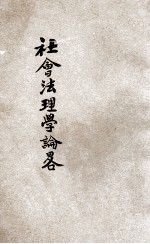 社會法理學論畧